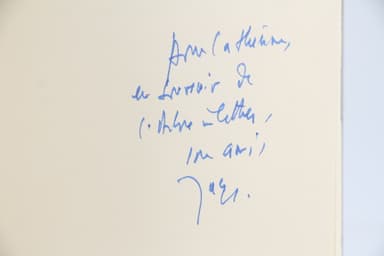 Pour Catherine,
en souvenir de
l'Arbre à lettres,
son ami,